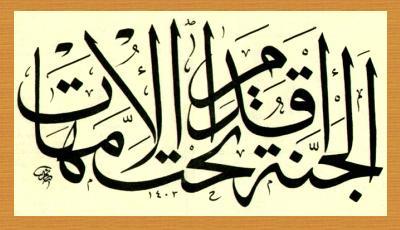 الجَنَّة تحت أقدام الأمّهات
١٤٠٣